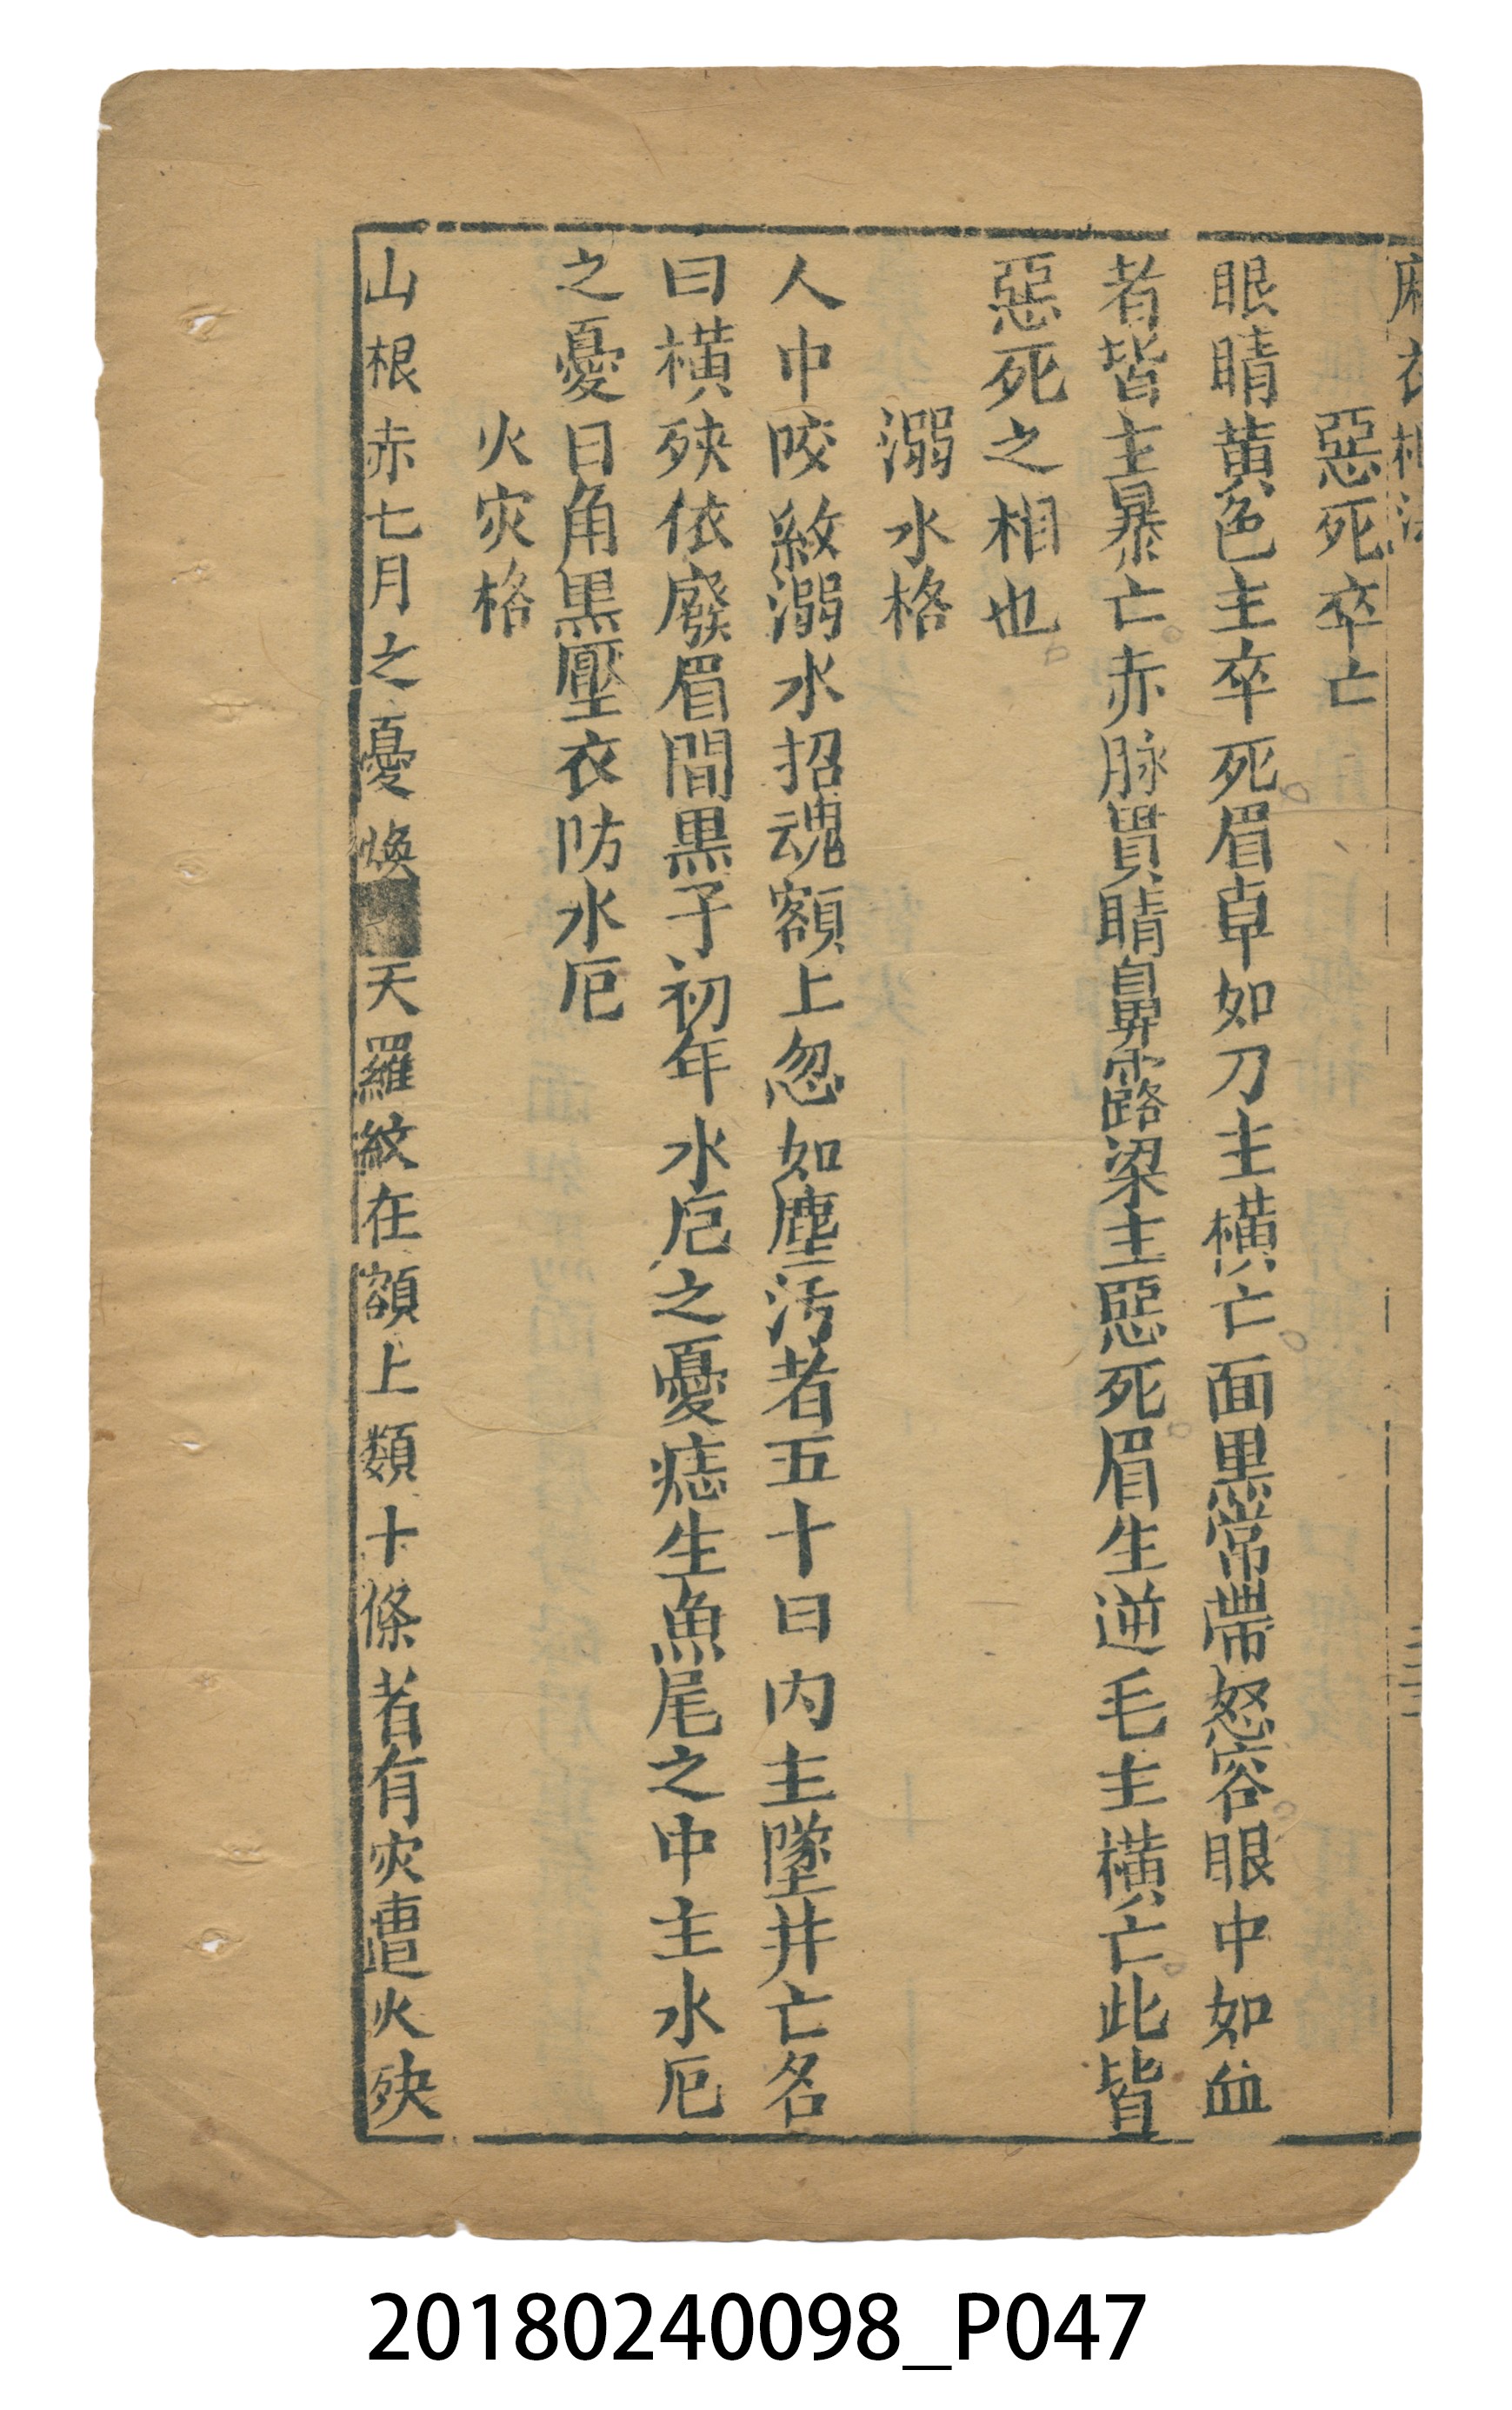 麻衣相法
惡死卒亡
眼睛黄色主卒死眉卓如刀主橫亡面黒常帶怒容眼中如血
者皆主暴亡赤脉貫睛鼻露梁主惡死眉生逆毛主橫亡此皆
惡死之相也
溺水格
人中咬紋溺水招魂額上忽如塵汚者五十日内主墜井亡名
曰橫殀依廢眉間黒子初年水厄之憂痣生魚尾之中主水厄
之憂日角黒壓衣防水厄
火灾格
山根赤七月之憂煥天羅紋在額上類十條者有灾遭火殃
20180240098_P047